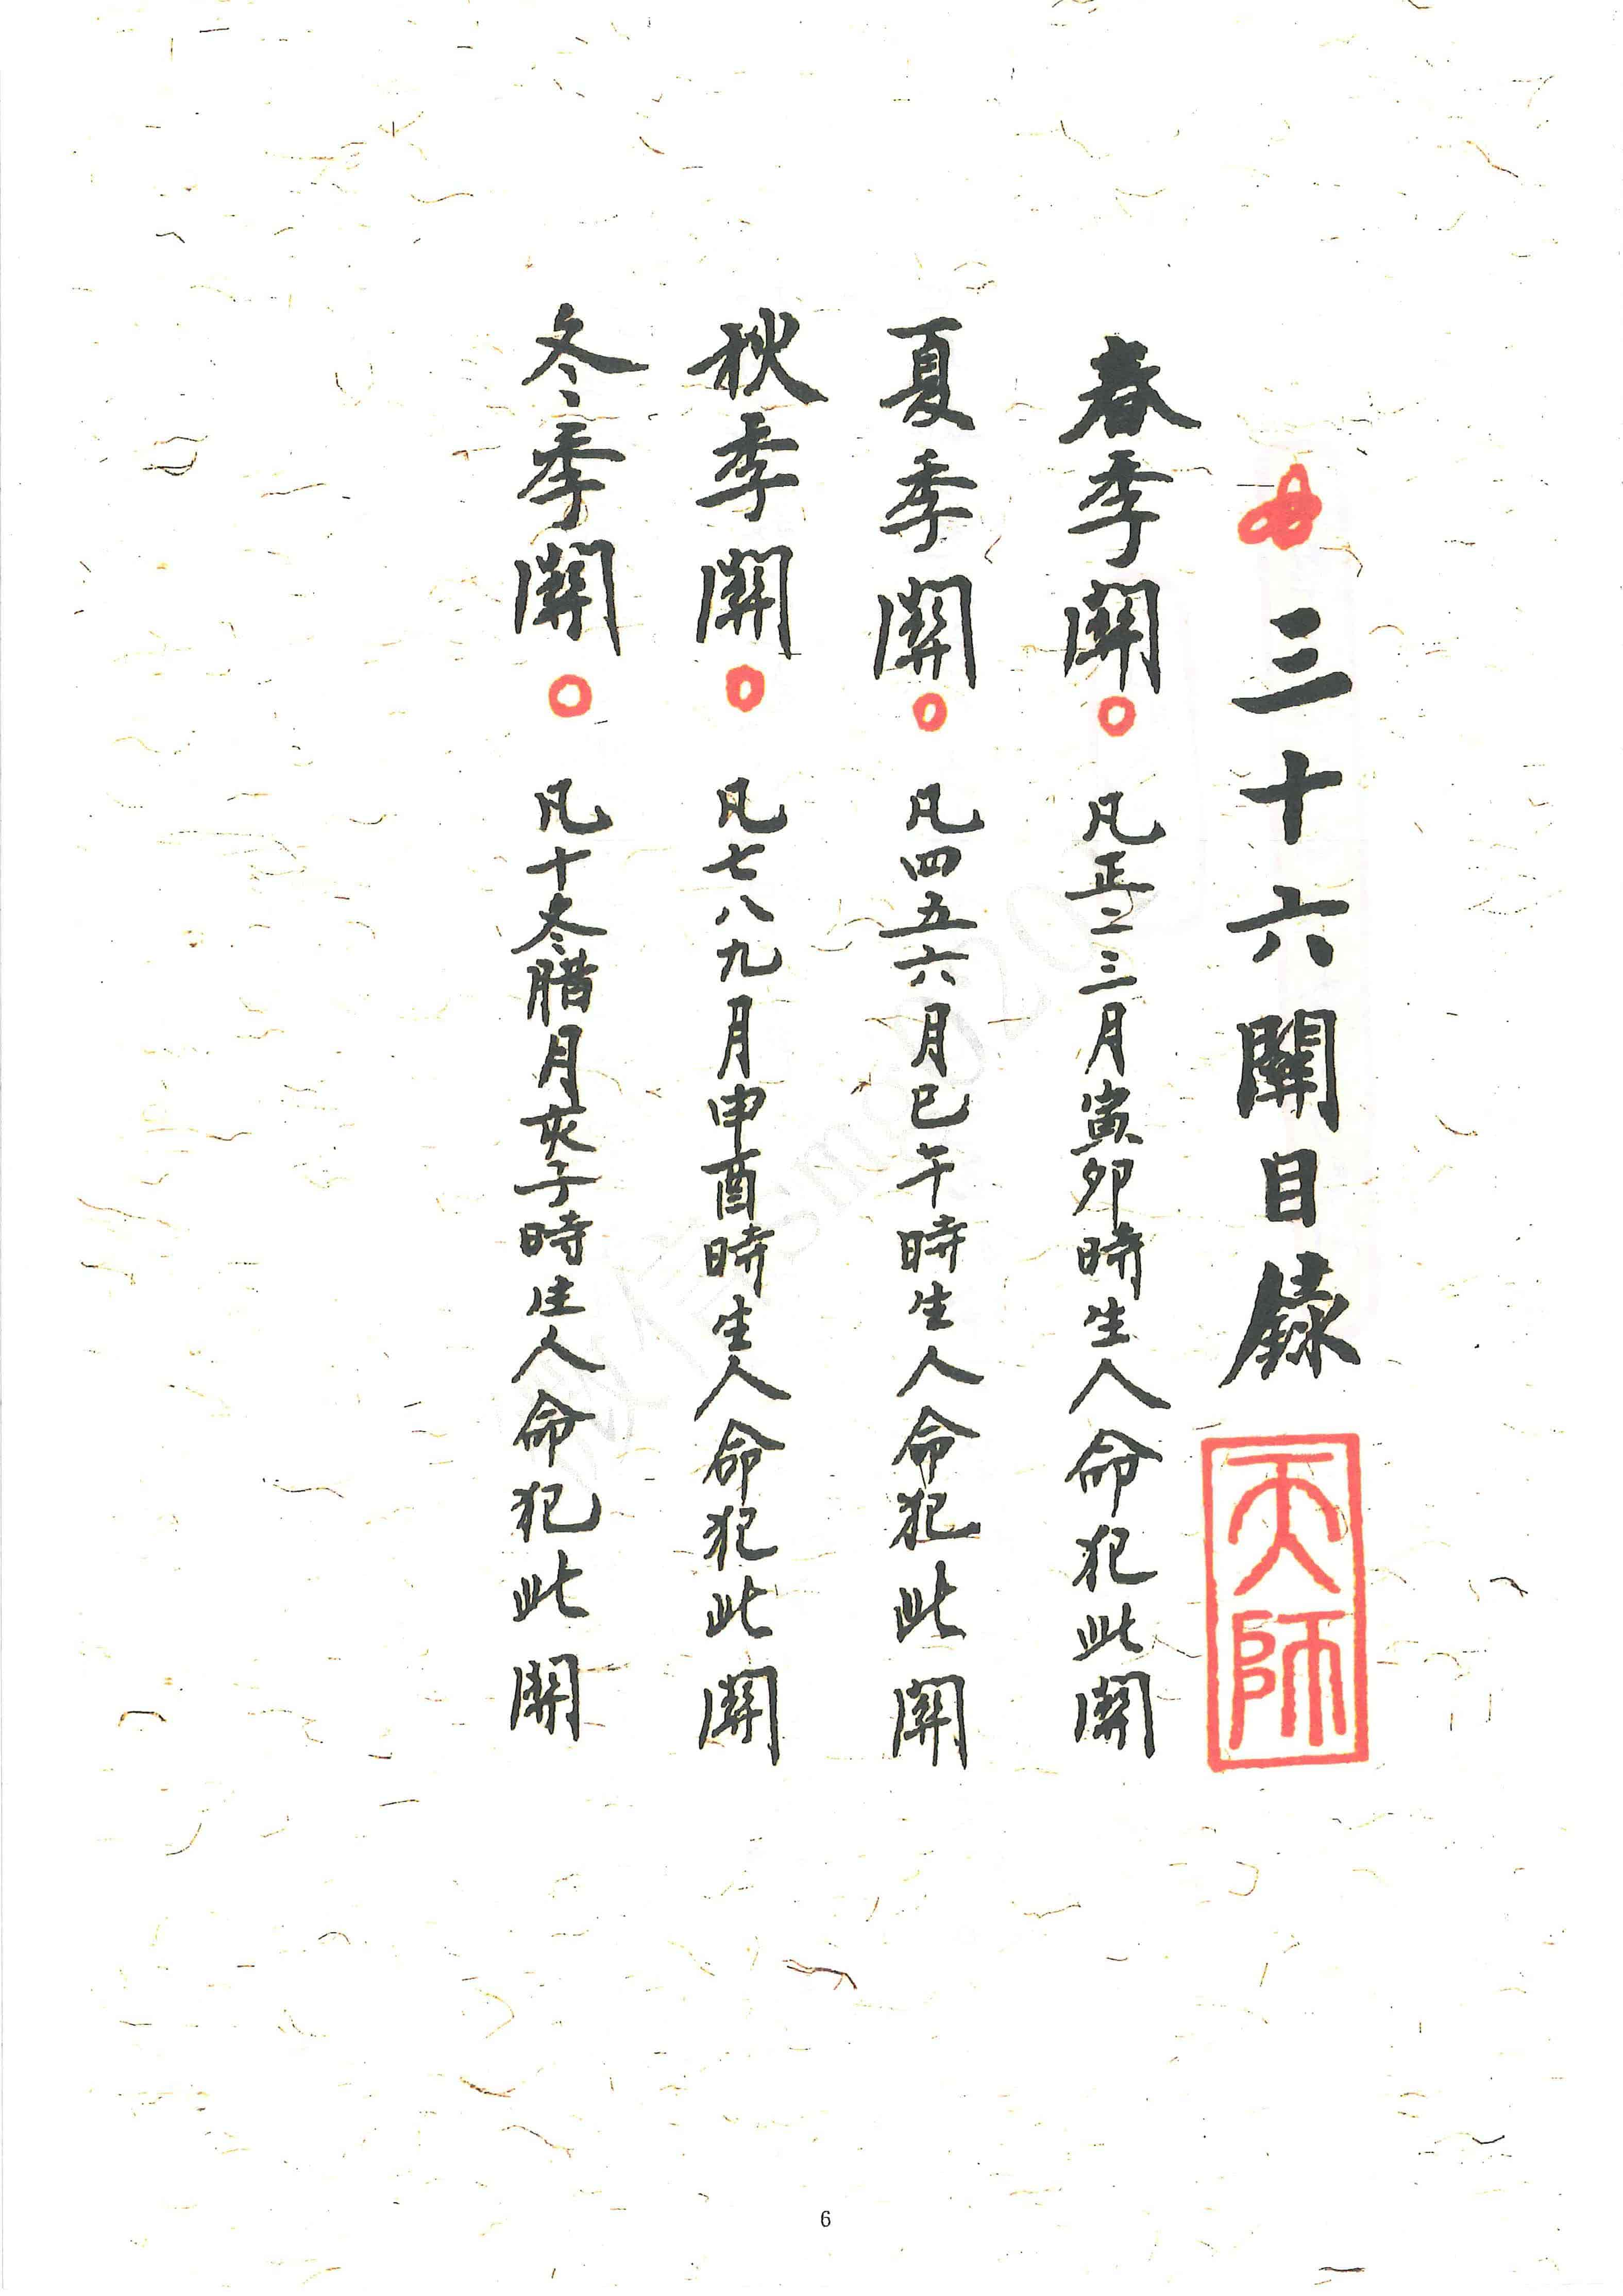 三十六關目錄
天師
春季關○ 凡正二三月寅卯時生人命犯此關
夏季關○ 凡四五六月巳午時生人命犯此關
秋季關○ 凡七八九月申酉時生人命犯此關
冬季關○ 凡十冬腊月亥子時生人命犯此關
6